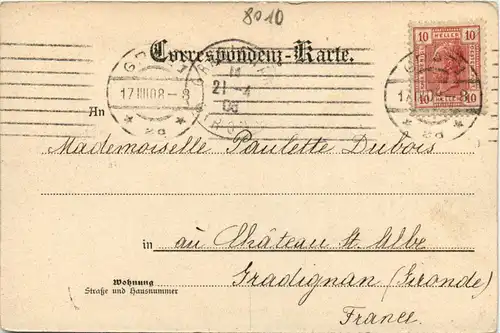 8010
Correspondenz-Karte.
10 HELLER 10
10 HELLER 10
17 III 08 - 8
21-4
08
An
Mademoiselle Paulette Dubois
in au Château St. Albe
Gradignan (Gironde)
Wohnung
Straße und Hausnummer
France.